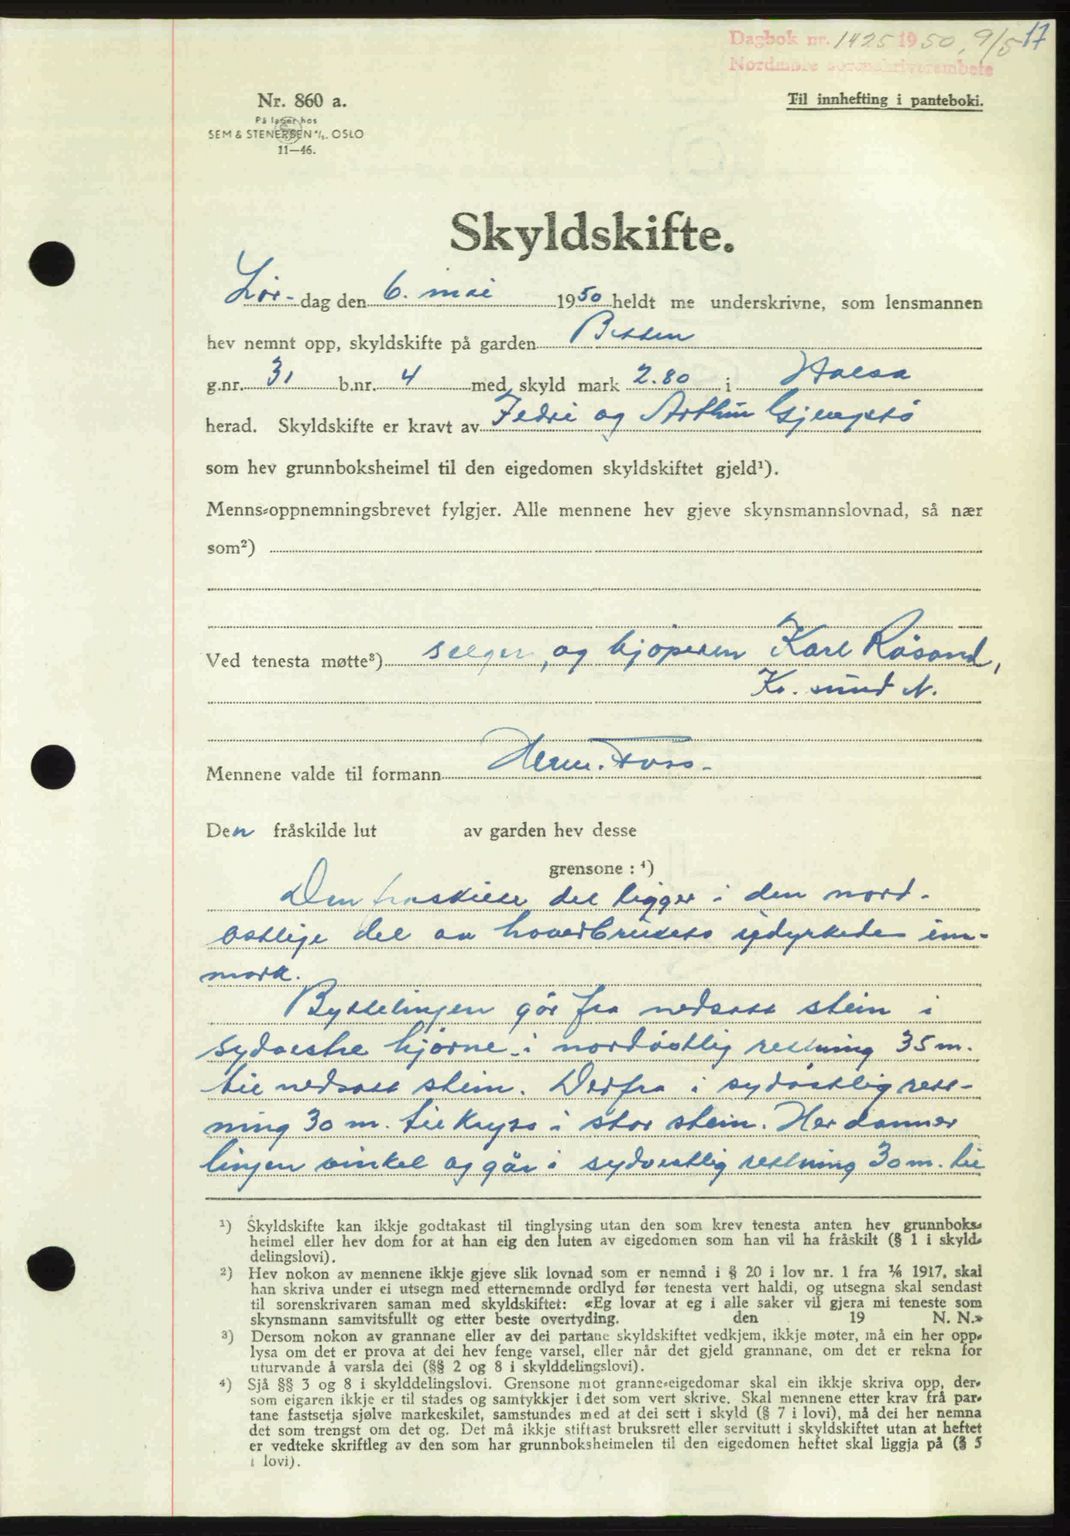 Dagbok nr. 1425 1950, 9/5 17
Nordmøre sorenskriverembete
Nr. 860 a.
Til innhefting i panteboki.
På lager hos
SEM & STENERSEN A/S. OSLO
11—46.
Skyldskifte.
Lør-dag den 6. mai 1950 heldt me underskrivne, som lensmannen
hev nemnt opp, skyldskifte på garden
g.nr. 31 b.nr. 4 med skyld mark 2.80 i Halsa
herad. Skyldskifte er kravt av og Arthur Gjengstø
som hev grunnboksheimel til den eigedomen skyldskiftet gjeld¹).
Menns-oppnemningsbrevet fylgjer. Alle mennene hev gjeve skynsmannslovnad, så nær
som²)
Ved tenesta møtte³) selgeren, og kjøperen Karl Røsand,
Kr. sund N.
Mennene valde til formann Herm. Foss.
Den fråskilde lut av garden hev desse
grensone : ⁴)
Den fraskilte del ligger i den nord-
østlige del av hovedbrukets updyrkede inn-
mark.
Byttelinjen går fra nedsatt stein i
sydvestre hjørne i nordøstlig rettning 35 m.
til nedsatt stein. Derfra i sydøstlig rett-
ning 30 m. til kryss i stor stein. Her danner
linjen vinkel og går i sydvestlig rettning 30 m. til
¹) Skyldskifte kan ikkje godtakast til tinglysing utan den som krev tenesta anten hev grunnboks-
heimel eller hev dom for at han eig den luten av eigedomen som han vil ha fråskilt (§ 1 i skyld-
delingslovi).
²) Hev nokon av mennene ikkje gjeve slik lovnad som er nemnd i § 20 i lov nr. 1 fra 1/6 1917, skal
han skriva under ei utsegn med etternemnde ordlyd før tenesta vert haldi, og utsegna skal sendast
til sorenskrivaren saman med skyldskiftet: «Eg lovar at eg i alle saker vil gjera mi teneste som
skynsmann samvitsfullt og etter beste overtyding. den 19 N. N.»
³) Dersom nokon av grannane eller av dei partane skyldskiftet vedkjem, ikkje møter, må ein her opp-
lysa om det er prova at dei hev fenge varsel, eller når det gjeld grannane, om det er rekna for
uturvande å varsla dei (§§ 2 og 8 i skylddelingslovi).
⁴) Sjå §§ 3 og 8 i skylddelingslovi. Grensone mot granne-eigedomar skal ein ikkje skriva opp, der-
som eigaren ikkje er til stades og samtykkjer i det som vert skrive. Skal mennene etter krav frå par-
tane fastsetja sjølve markeskilet, samstundes med at dei sett i skyld (§ 7 i lovi), må dei her nemna
det som trengst om det og. Det må ikkje stiftast bruksrett eller servitutt i skyldskiftet utan at heftet
er vedteke skriftleg av den som har grunnboksheimelen til den eigedomen heftet skal liggja på (§ 5
i lovi).